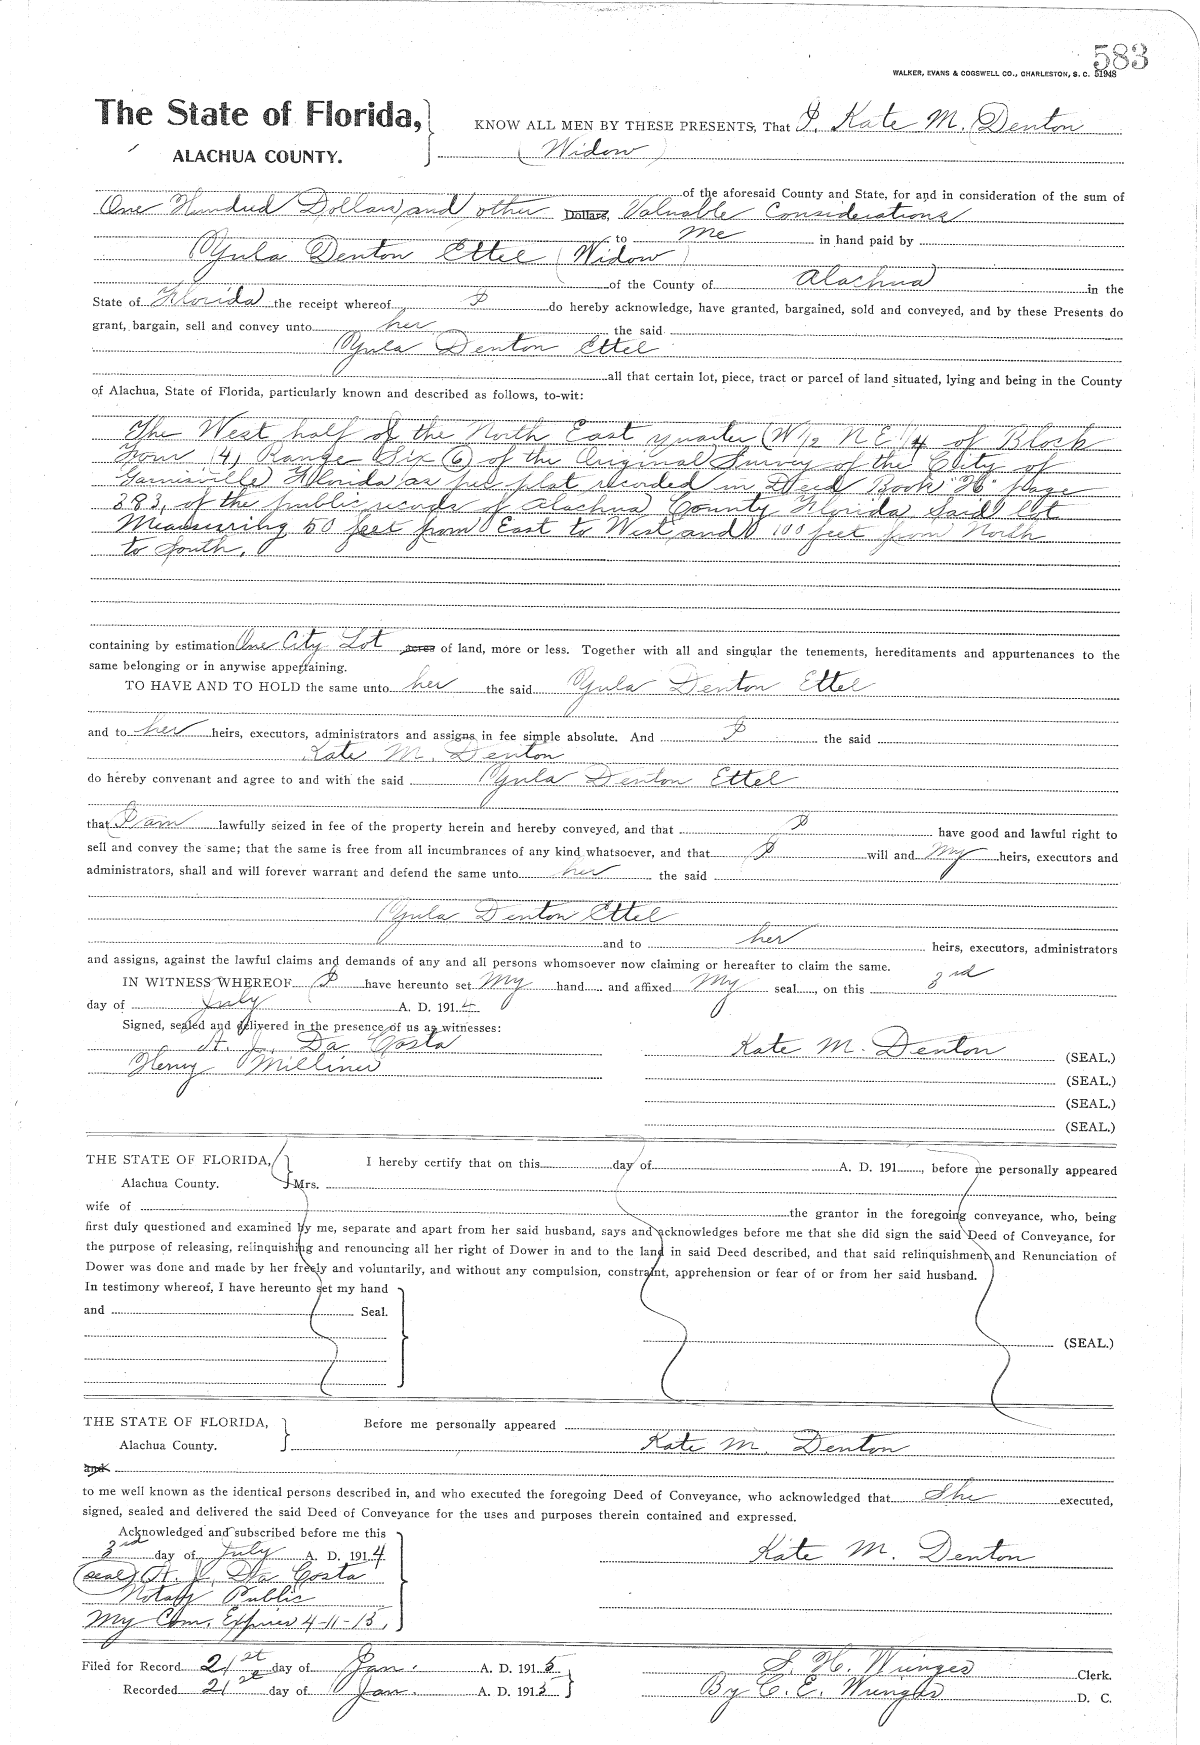 583
WALKER, EVANS & COGSWELL CO., CHARLESTON, S. C. 51948
The State of Florida,
KNOW ALL MEN BY THESE PRESENTS, That I, Kate M. Denton
ALACHUA COUNTY. (Widow)
of the aforesaid County and State, for and in consideration of the sum of
One Hundred Dollars and other Dollars, Valuable Considerations
to me in hand paid by
Yula Denton Ettel (Widow)
of the County of Alachua in the
State of Florida the receipt whereof I do hereby acknowledge, have granted, bargained, sold and conveyed, and by these Presents do
grant, bargain, sell and convey unto her the said
Yula Denton Ettel
all that certain lot, piece, tract or parcel of land situated, lying and being in the County
of Alachua, State of Florida, particularly known and described as follows, to-wit:
The West half of the North East quarter (W 1/2 N E 1/4 of Block
Four (4) Range Six (6) of the Original Survey of the City of
Gainesville Florida as per plat recorded in Deed Book "H" page
383, of the public records of Alachua County Florida Said lot
Meausuring 50 feet from East to West and 100 feet from North
to South.
containing by estimation One City Lot acres of land, more or less. Together with all and singular the tenements, hereditaments and appurtenances to the
same belonging or in anywise appertaining.
TO HAVE AND TO HOLD the same unto her the said Yula Denton Ettel
and to her heirs, executors, administrators and assigns in fee simple absolute. And I the said
Kate M. Denton
do hereby convenant and agree to and with the said Yula Denton Ettel
that I am lawfully seized in fee of the property herein and hereby conveyed, and that I have good and lawful right to
sell and convey the same; that the same is free from all incumbrances of any kind whatsoever, and that I will and my heirs, executors and
administrators, shall and will forever warrant and defend the same unto her the said
Yula Denton Ettel
and to her heirs, executors, administrators
and assigns, against the lawful claims and demands of any and all persons whomsoever now claiming or hereafter to claim the same.
IN WITNESS WHEREOF I have hereunto set My hand and affixed My seal, on this 3rd
day of July A. D. 1914
Signed, sealed and delivered in the presence of us as witnesses:
A. J. Da Costa
Kate M. Denton (SEAL.)
Henry Milliner
(SEAL.)
(SEAL.)
(SEAL.)
THE STATE OF FLORIDA, I hereby certify that on this day of A. D. 191, before me personally appeared
Alachua County. Mrs.
wife of the grantor in the foregoing conveyance, who, being
first duly questioned and examined by me, separate and apart from her said husband, says and acknowledges before me that she did sign the said Deed of Conveyance, for
the purpose of releasing, relinquishing and renouncing all her right of Dower in and to the land in said Deed described, and that said relinquishment and Renunciation of
Dower was done and made by her freely and voluntarily, and without any compulsion, constraint, apprehension or fear of or from her said husband.
In testimony whereof, I have hereunto set my hand
and Seal.
(SEAL.)
THE STATE OF FLORIDA, Before me personally appeared
Alachua County. Kate M. Denton
and
to me well known as the identical persons described in, and who executed the foregoing Deed of Conveyance, who acknowledged that She executed,
signed, sealed and delivered the said Deed of Conveyance for the uses and purposes therein contained and expressed.
Acknowledged and subscribed before me this
3rd day of July A. D. 1914 Kate M. Denton
(seal) A. J. Da Costa
Notary Public
My Com. Expires 4-11-15.
Filed for Record 21st day of Jan. A. D. 1915 S. H. Wienges Clerk.
Recorded 21st day of Jan. A. D. 1915 By C. E. Wienges D. C.